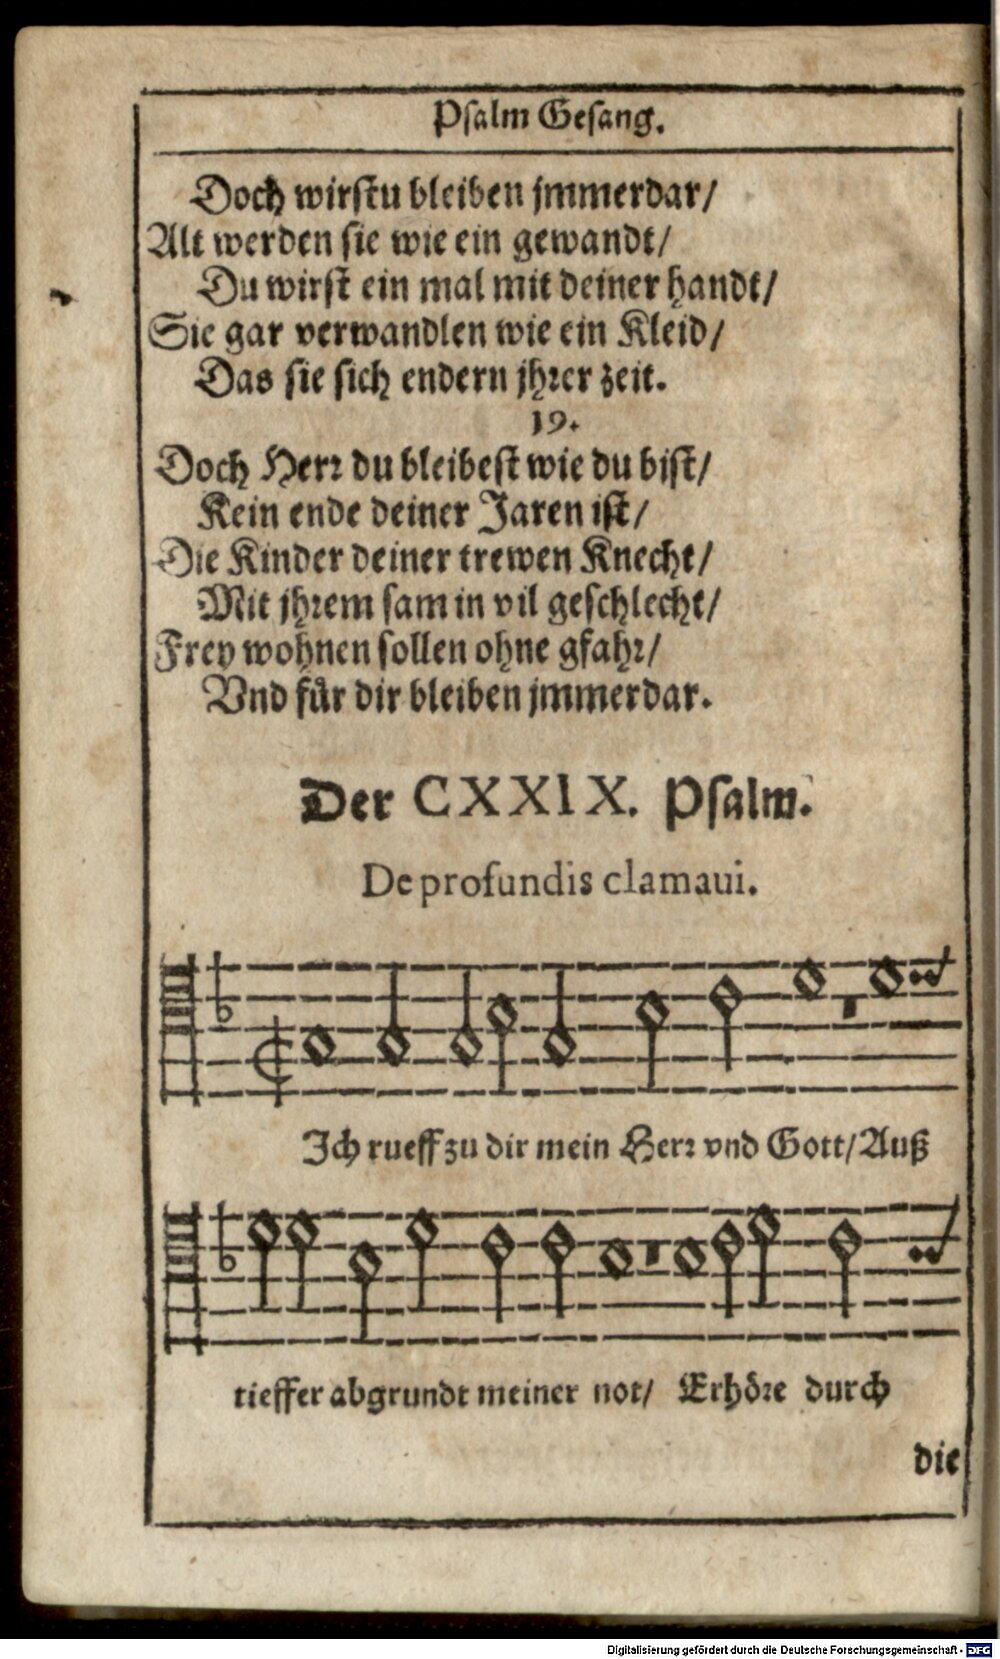 Psalm Gesang.
Doch wirstu bleiben jmmerdar/
Alt werden sie wie ein gewandt/
Du wirst ein mal mit deiner handt/
Sie gar verwandlen wie ein Kleid/
Das sie sich endern jhrer zeit.
19.
Doch Herr du bleibest wie du bist/
Kein ende deiner Jaren ist/
Die Kinder deiner trewen Knecht/
Mit jhrem sam in vil geschlecht/
Frey wohnen sollen ohne gfahr/
Vnd fůr dir bleiben jmmerdar.
Der CXXIX. Psalm.
De profundis clamaui.
Ich rueff zu dir mein Herr vnd Gott/Auß
tieffer abgrundt meiner not/ Erhöre durch
die
Digitalisierung gefördert durch die Deutsche Forschungsgemeinschaft - DFG